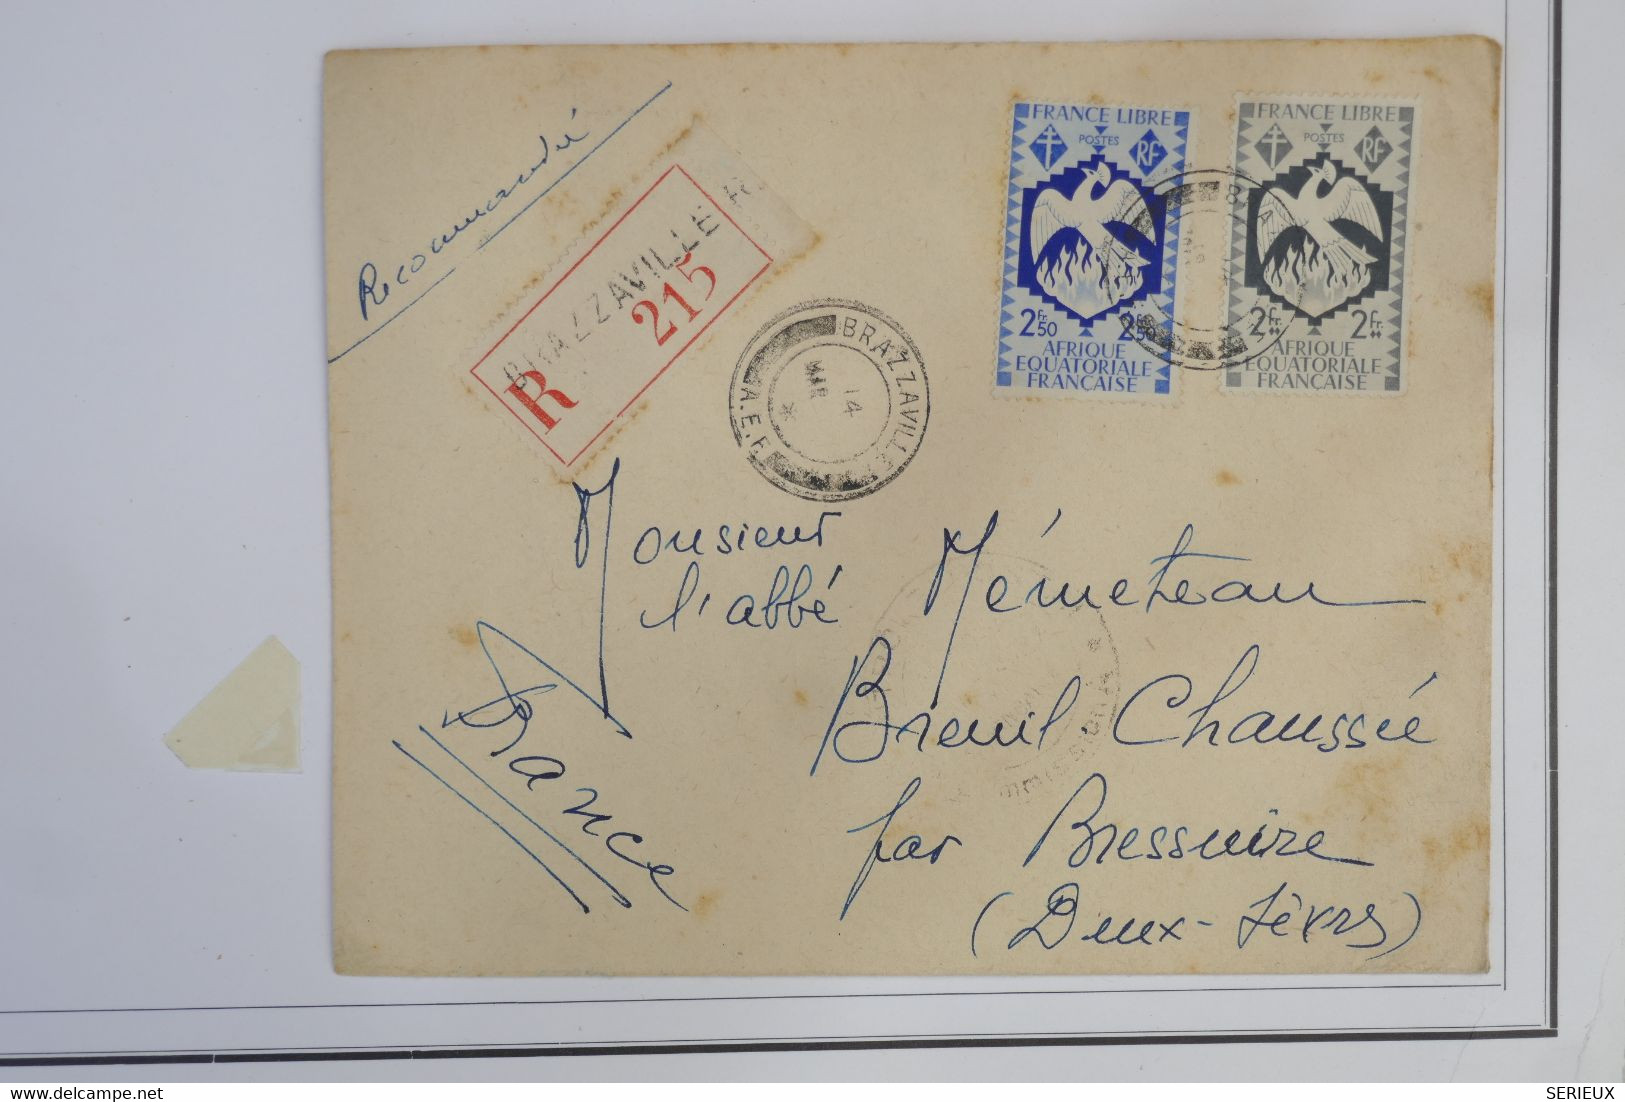 Recommandé
BRAZZAVILLE R
R 215
FRANCE LIBRE
POSTES
RF
2 Fr. 50 2 Fr. 50
AFRIQUE
EQUATORIALE
FRANÇAISE
FRANCE LIBRE
POSTES
RF
2 Fr. 2 Fr.
AFRIQUE
EQUATORIALE
FRANÇAISE
BRAZZAVILLE
14
MR
A.E.F.
Monsieur
l'abbé Mémeteau
Breuil Chaussée
par Bressuire
(Deux-Sèvres)
France
SERIEUX
delcampe.net